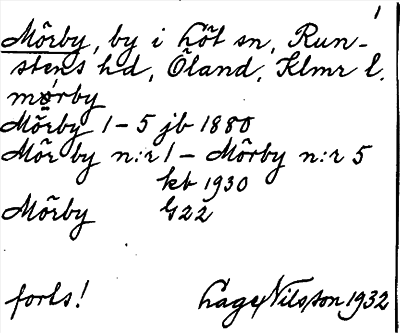 1
Mörby, by i Löt sn, Run-
stens hd, Öland, Klmr l.
mö́rby
Mörby 1–5 jb 1880
Mörby n:r 1 – Mörby n:r 5
kb 1930
Mörby G22
forts! Lage Nilsson 1932